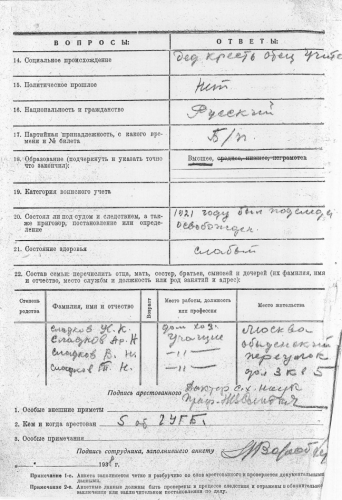 ВОПРОСЫ: ОТВЕТЫ:
14. Социальное происхождение дед крестьянин отец
15. Политическое прошлое нет
16. Национальность и гражданство Русский
17. Партийная принадлежность, с какого времени и № билета Б/п.
18. Образование (подчеркнуть и указать точно что закончил): Высшее, среднее, низшее, неграмотен
19. Категория воинского учета
20. Состоял ли под судом и следствием, а также приговор, постановление или определение 1921 году был под след. освобожден
21. Состояние здоровья слабый
22. Состав семьи: перечислить отца, мать, сестер, братьев, сыновей и дочерей (их фамилия, имя
и отчество, место службы и должность или род занятий и адрес):
Степень родства Фамилия, имя и отчество Возраст Место работы, должность или профессия Место жительства
Сладков Н. К. дом. хоз. Москва
Сладков Ар. Н. Учащиеся
Сладков В. Н. —//— переулок
Сладков Т. Н. —//— дом 3 кв 5
Подпись арестованного Доктор с.х. наук
Проф.
1. Особые внешние приметы
2. Кем и когда арестован 5 от ГУГБ.
Подпись сотрудника, заполнившего анкету
193 8 г.
Примечание 1-е. Анкета заполняется четко и разборчиво на слов арестованного и проверяется документальными
данными.
Примечание 2-е. Анкетные данные должны быть проверены в процессе следствия и отражены в обвинительном
заключении или заключительном постановлении по делу.